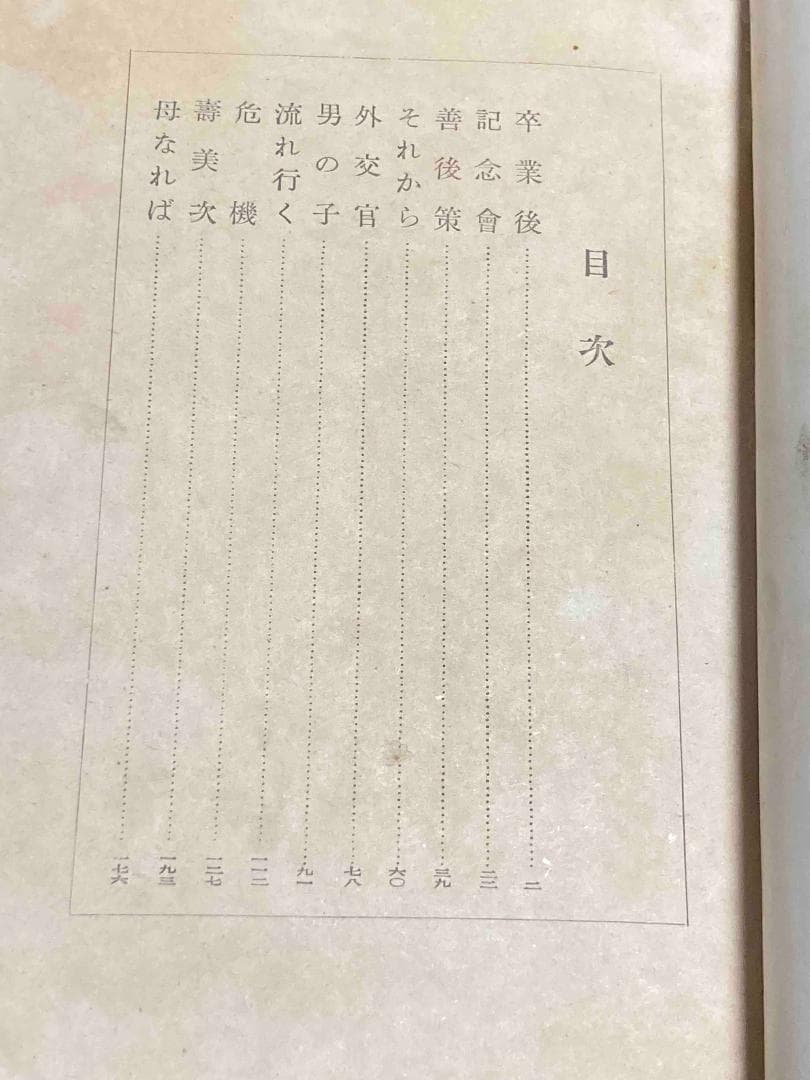 目次
卒業後……二
記念會……二二
善後策……三九
それから……六〇
外交官……七八
男の子……九一
流れ行く……一一二
危機……一二七
壽美次……一九三
母なれば……一七六